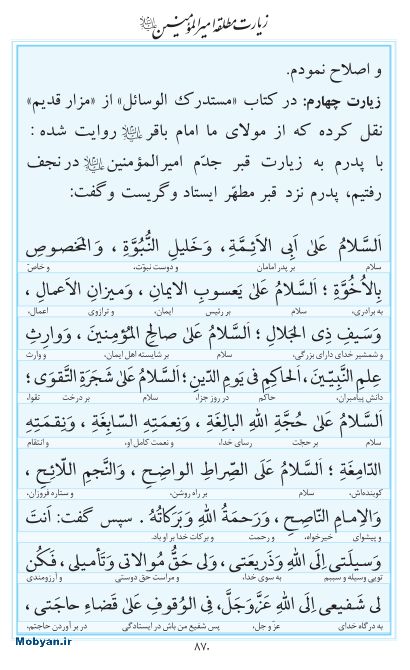 زیارت مطلقه امیرالمؤمنین علیه‌السلام
و اصلاح نمودم.
زیارت چهارم: در کتاب «مستدرک الوسائل» از «مزار قدیم»
نقل کرده که از مولای ما امام باقر علیه‌السلام روایت شده :
با پدرم به زیارت قبر جدّم امیرالمؤمنین علیه‌السلام در نجف
رفتیم، پدرم نزد قبر مطهّر ایستاد وگریست وگفت:
اَلسَّلامُ عَلىٰ اَبِى الاَئِمَّةِ ، وَخَليلِ النُّبُوَّةِ ، وَالمَخصوصِ
سلام بر پدر امامان و دوست نبوّت، و خاصّ
بِالأُخُوَّةِ ؛ اَلسَّلامُ عَلىٰ يَعسوبِ الايمانِ ، وَميزانِ الاَعمالِ ،
به برادری، سلام بر رئیس ایمان، و ترازوی اعمال،
وَسَيفِ ذِى الجَلالِ ؛ اَلسَّلامُ عَلىٰ صالِحِ المُؤمِنينَ ، وَوارِثِ
و شمشیر خدای دارای بزرگی، سلام بر شایسته اهل ایمان، و وارث
عِلمِ النَّبِيّينَ ، اَلحاكِمِ فى يَومِ الدّينِ ؛ اَلسَّلامُ عَلىٰ شَجَرَةِ التَّقوىٰ ؛
دانش پیامبران، حاکم در روز جزا، سلام بر درخت تقوا،
اَلسَّلامُ عَلىٰ حُجَّةِ اللهِ البالِغَةِ ، وَنِعمَتِهِ السّابِغَةِ ، وَنِقمَتِهِ
سلام بر حجّت رسای خدا، و نعمت کامل او، و انتقام
الدّامِغَةِ ؛ اَلسَّلامُ عَلَى الصِّراطِ الواضِحِ ، وَالنَّجمِ اللّائِحِ ،
کوبنده‌اش، سلام بر راه روشن، و ستاره فروزان،
وَالاِمامِ النّاصِحِ ، وَرَحمَةُ اللهِ وَبَرَكاتُهُ . سپس گفت: اَنتَ
و پیشوای خیرخواه، و رحمت و برکات خدا بر او باد.
وَسيلَتى اِلَى اللهِ وَذَريعَتى ، وَلى حَقُّ مُوالاتى وَتَأميلى ، فَكُن
تویی وسیله و سببم به سوی خدا، و مراست حق دوستی و آرزومندی
لى شَفيعى اِلَى اللهِ عَزَّوَجَلَّ ، فِى الوُقوفِ عَلىٰ قَضاءِ حاجَتى ،
به درگاه خدای عزّ و جل، پس شفیع من باش در ایستادگی در بر آوردن حاجتم،
۸۷۰
Mobyan.ir